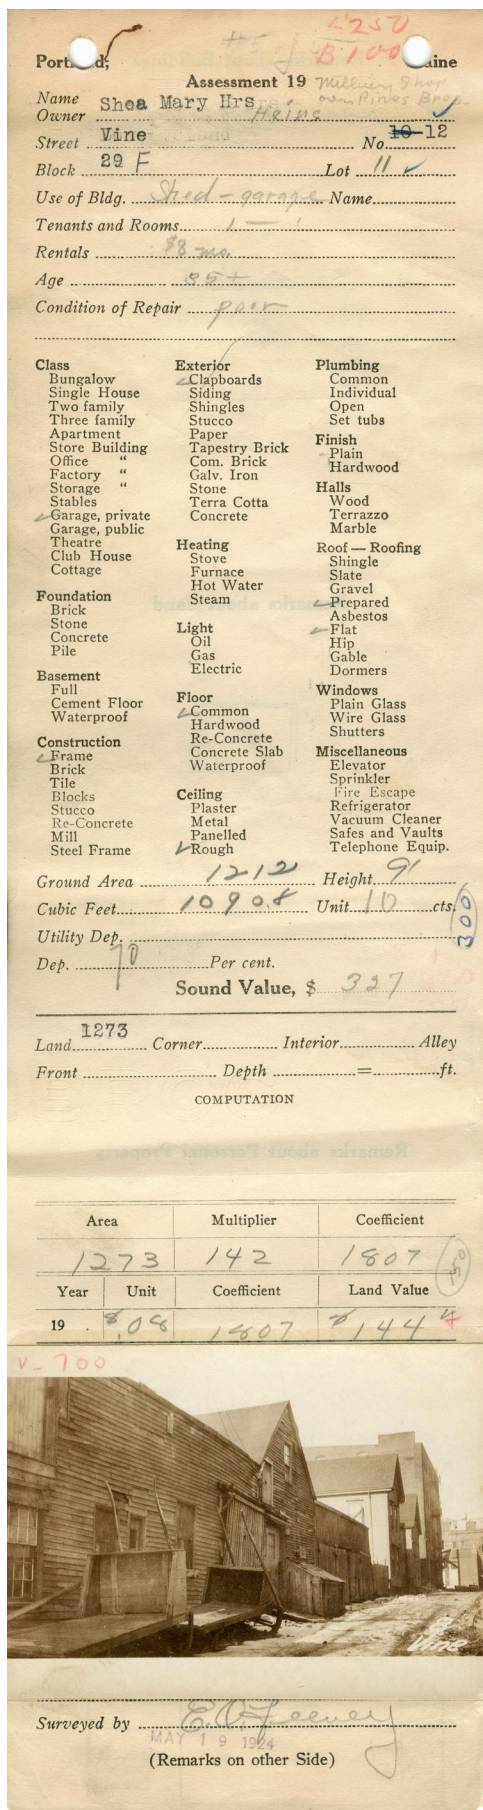 L 250
B 100
Portland, Maine
Assessment 19
Millinery Shop
over Pines Brop.
Name Owner Shea Mary Hrs Heirs
Street Vine No. 10-12
Block 29 F Lot 11
Use of Bldg. Shed - garage Name
Tenants and Rooms 1 —
Rentals $8 mo.
Age 35+
Condition of Repair poor
Class
Bungalow
Single House
Two family
Three family
Apartment
Store Building
Office "
Factory "
Storage "
Stables
✓ Garage, private
Garage, public
Theatre
Club House
Cottage
Foundation
Brick
Stone
Concrete
Pile
Basement
Full
Cement Floor
Waterproof
Construction
✓ Frame
Brick
Tile
Blocks
Stucco
Re-Concrete
Mill
Steel Frame
Exterior
✓ Clapboards
Siding
Shingles
Stucco
Paper
Tapestry Brick
Com. Brick
Galv. Iron
Stone
Terra Cotta
Concrete
Heating
Stove
Furnace
Hot Water
Steam
Light
Oil
Gas
Electric
Floor
✓ Common
Hardwood
Re-Concrete
Concrete Slab
Waterproof
Ceiling
Plaster
Metal
Panelled
✓ Rough
Plumbing
Common
Individual
Open
Set tubs
Finish
Plain
Hardwood
Halls
Wood
Terrazzo
Marble
Roof — Roofing
Shingle
Slate
Gravel
✓ Prepared
Asbestos
✓ Flat
Hip
Gable
Dormers
Windows
Plain Glass
Wire Glass
Shutters
Miscellaneous
Elevator
Sprinkler
Fire Escape
Refrigerator
Vacuum Cleaner
Safes and Vaults
Telephone Equip.
Ground Area 1212 Height 9'
Cubic Feet 10908 Unit 10 cts.
300
Utility Dep.
Dep. 70 Per cent.
Sound Value, $ 327
Land 1273 Corner Interior Alley
Front Depth = ft.
COMPUTATION
Area Multiplier Coefficient
1273 142 1807
Year Unit Coefficient Land Value
19 . $.08 1807 $144
V-700
Vine
Surveyed by E.O. Feeney
MAY 19 1924
(Remarks on other Side)